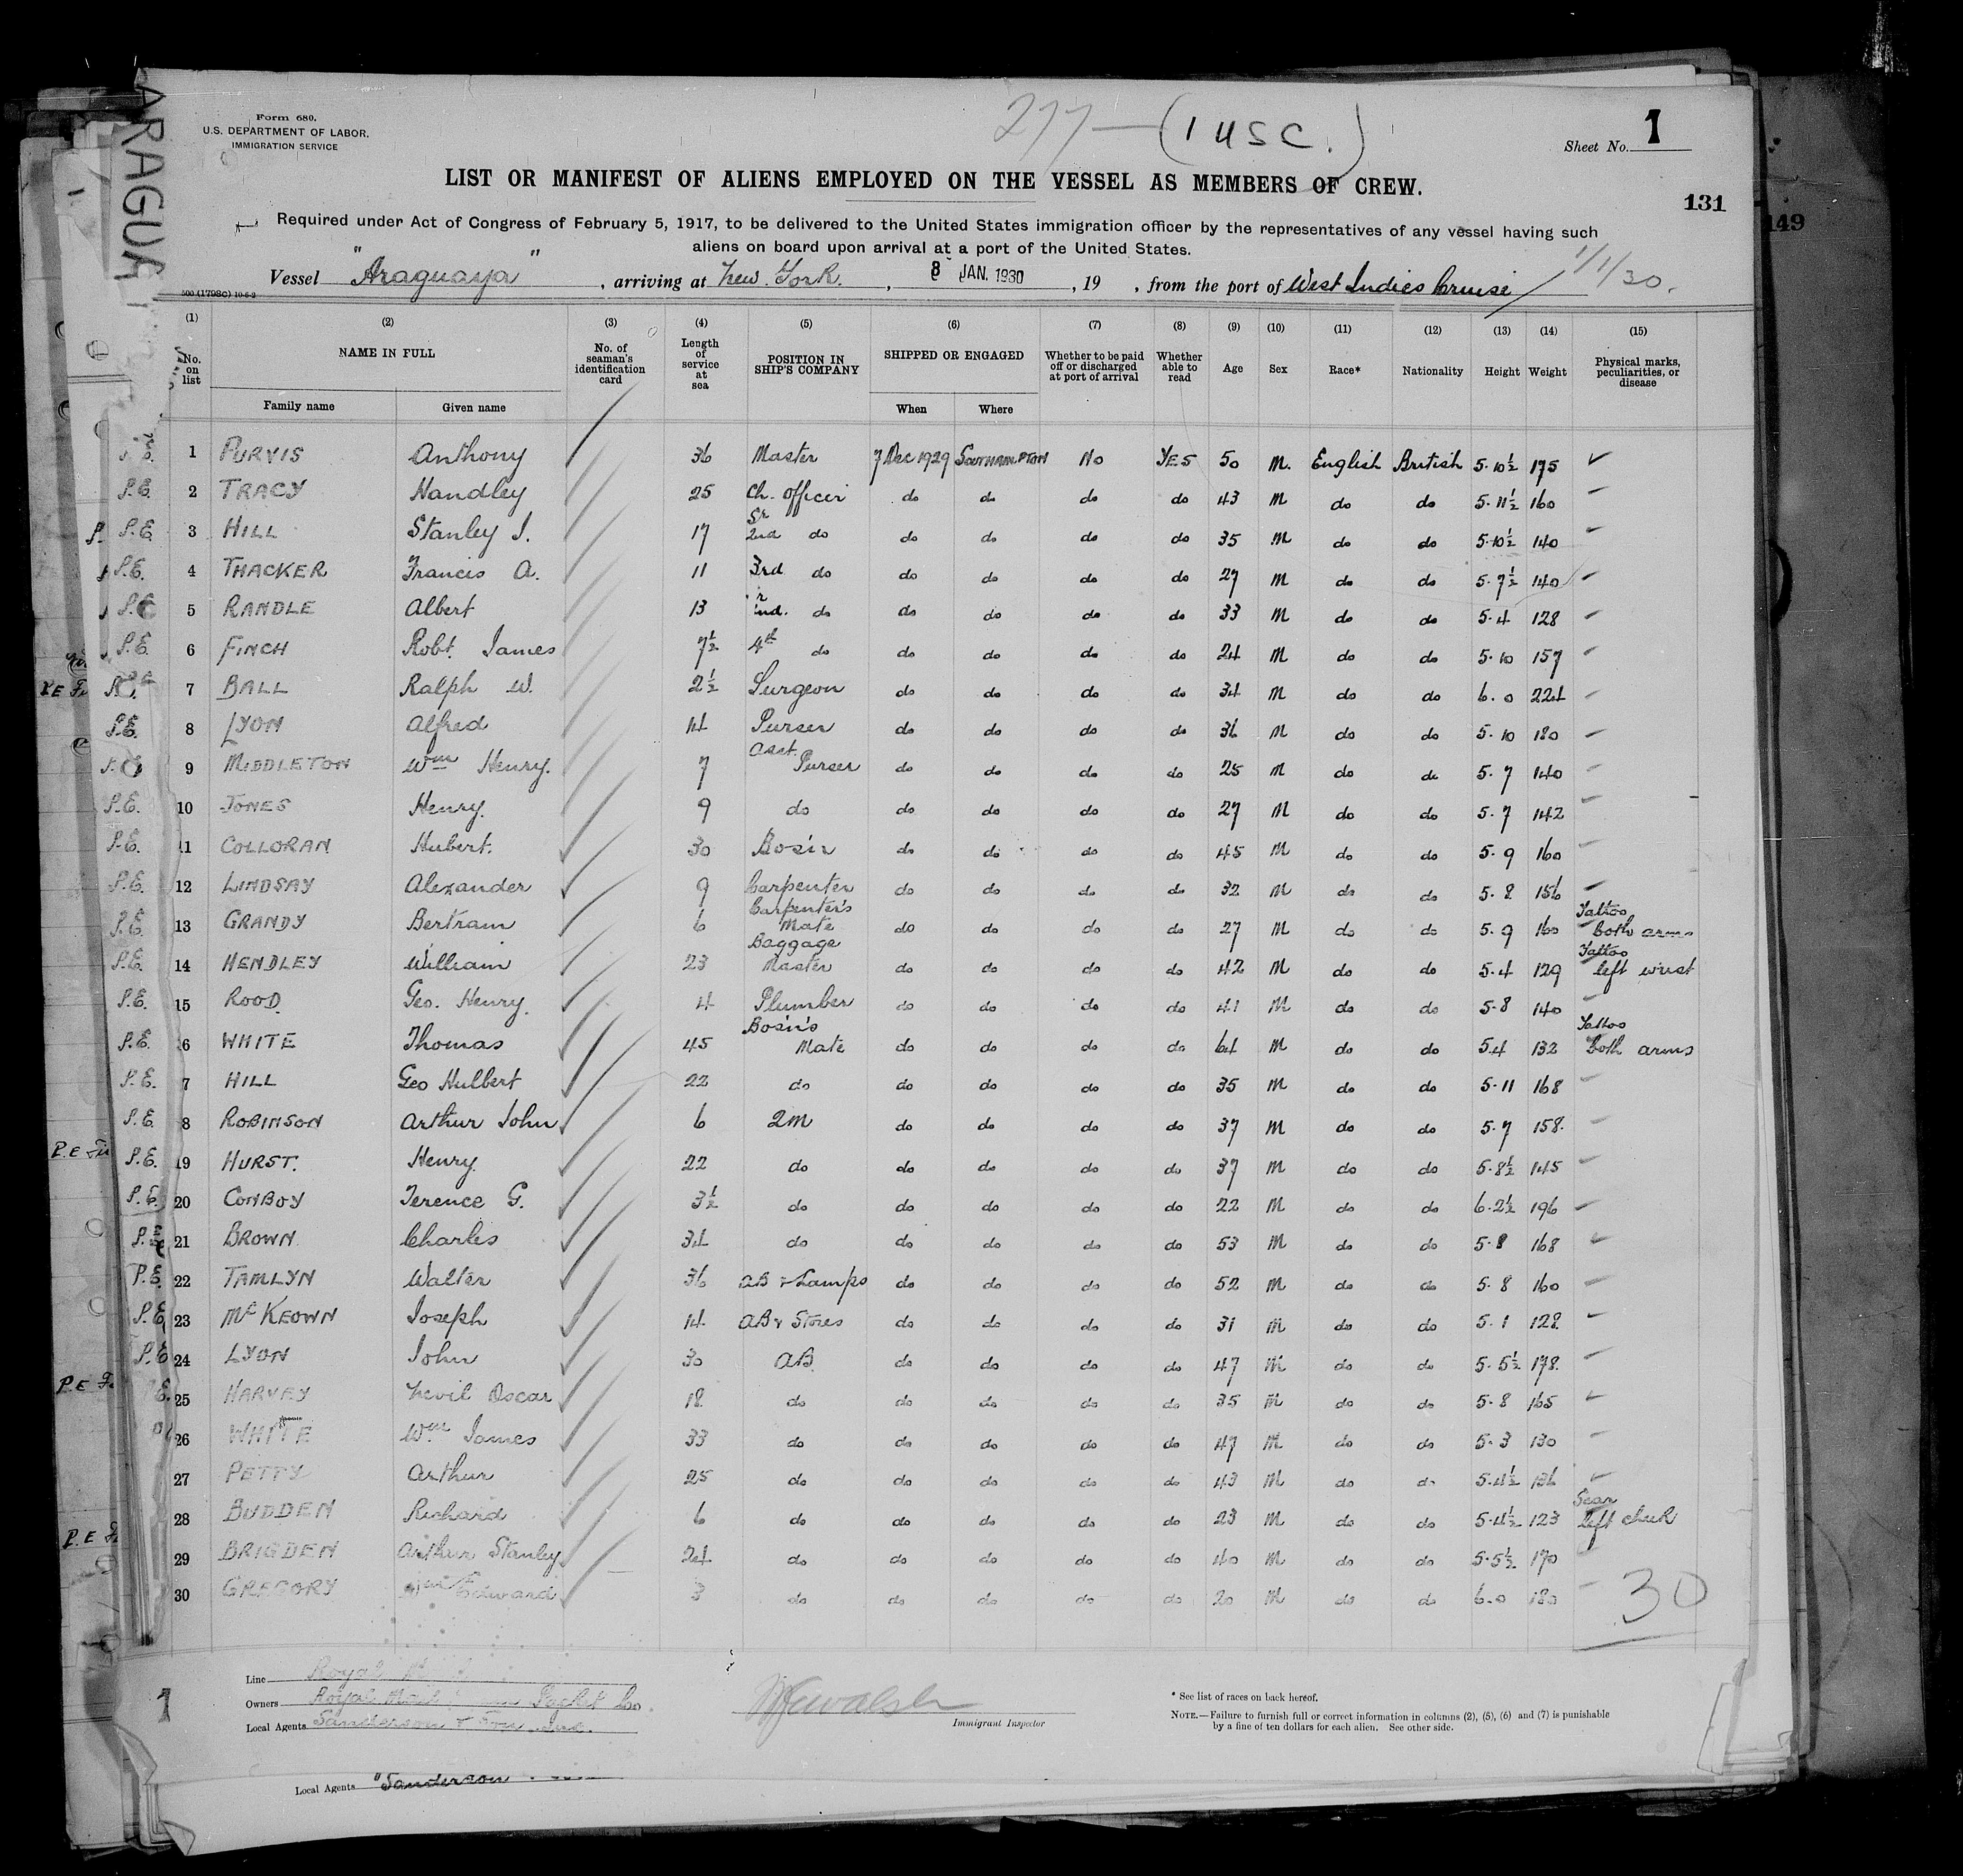 ARAGUA
Form 680.
U.S. DEPARTMENT OF LABOR.
IMMIGRATION SERVICE
277 — (1 USC.)
Sheet No. 1
LIST OR MANIFEST OF ALIENS EMPLOYED ON THE VESSEL AS MEMBERS OF CREW.
131
149
Required under Act of Congress of February 5, 1917, to be delivered to the United States immigration officer by the representatives of any vessel having such
aliens on board upon arrival at a port of the United States.
Vessel "Araguaya", arriving at New York., 8 JAN. 1930, 19 , from the port of West Indies Cruise 1/1/30.
500 (1798C) 10-6-2
(1) (2) (3) (4) (5) (6) (7) (8) (9) (10) (11) (12) (13) (14) (15)
No. on list NAME IN FULL No. of seaman's identification card Length of service at sea POSITION IN SHIP'S COMPANY SHIPPED OR ENGAGED Whether to be paid off or discharged at port of arrival Whether able to read Age Sex Race* Nationality Height Weight Physical marks, peculiarities, or disease
Family name Given name When Where
1 PURVIS Anthony 36 Master 7 Dec 1929 SOUTHAMPTON No YES 50 M. English British 5·10½ 175
P.E. 2 TRACY Handley 25 Ch. Officer do do do do 43 M do do 5·11½ 160
P.E. 3 HILL Stanley J. 17 Sr 2nd do do do do do 35 M do do 5·10½ 140
P.E. 4 THACKER Francis A. 11 3rd do do do do do 27 M do do 5·7½ 140
P.E. 5 RANDLE Albert 13 do do do do do 33 M do do 5·4 128
P.E. 6 FINCH Robt. James 7½ 4th do do do do do 24 M do do 5·10 157
7 BALL Ralph W. 2½ Surgeon do do do do 34 M do do 6·0 224
P.E. 8 LYON Alfred 14 Purser do do do do 36 M do do 5·10 180
9 MIDDLETON Wm Henry. 7 Asst. Purser do do do do 25 M do do 5·7 140
P.E. 10 JONES Henry. 9 do do do do do 27 M do do 5·7 142
P.E. 11 COLLORAN Hubert. 30 Bosin do do do do 45 M do do 5·9 160
P.E. 12 LINDSAY Alexander 9 Carpenter do do do do 32 M do do 5·8 156
P.E. 13 GRANDY Bertram 6 Carpenter's Mate do do do do 27 M do do 5·9 160 Tattoo both arms
P.E. 14 HENDLEY William 23 Baggage Master do do do do 42 M do do 5·4 129 Tattoo left wrist
P.E. 15 ROOD. Geo. Henry. 4 Plumber do do do do 41 M do do 5·8 140
P.E. 6 WHITE Thomas 45 Bosin's Mate do do do do 64 M do do 5·4 132 Tattoo both arms
P.E. 7 HILL Geo Hulbert 22 do do do do do 35 M do do 5·11 168
P.E. 8 ROBINSON Arthur John 6 2M do do do do 37 M do do 5·7 158.
P.E. 19 HURST. Henry. 22 do do do do do 37 M do do 5·8½ 145
P.E. 20 CONBOY Terence G. 3½ do do do do do 22 M do do 6·2½ 196
P.E. 21 BROWN. Charles 34 do do do do do 53 M do do 5·8 168
P.E. 22 TAMLYN Walter 36 AB & Lamps do do do do 52 M do do 5·8 160
P.E. 23 McKEOWN Joseph 14 AB & Stores do do do do 31 M do do 5·1 128.
P.E. 24 LYON John 30 AB. do do do do 47 M do do 5·5½ 178.
25 HARVEY Nevil Oscar 18 do do do do do 35 M do do 5·8 165
26 WHITE Wm James 33 do do do do do 47 M do do 5·3 130
27 PETTY Arthur 25 do do do do do 43 M do do 5·4½ 136
28 BUDDEN Richard 6 do do do do do 23 M do do 5·4½ 123 Scar left cheek
29 BRIGDEN Arthur Stanley. 24 do do do do do 40 M do do 5·5½ 170
30 GREGORY Wm Edward 3 do do do do do 20 M do do 6·0 180
30
1
Line Royal
Owners Royal Mail Packet Co.
Local Agents Sanderson & Son Inc.
Immigrant Inspector
* See list of races on back hereof.
NOTE.—Failure to furnish full or correct information in columns (2), (5), (6) and (7) is punishable
by a fine of ten dollars for each alien. See other side.
Local Agents "Sanderson